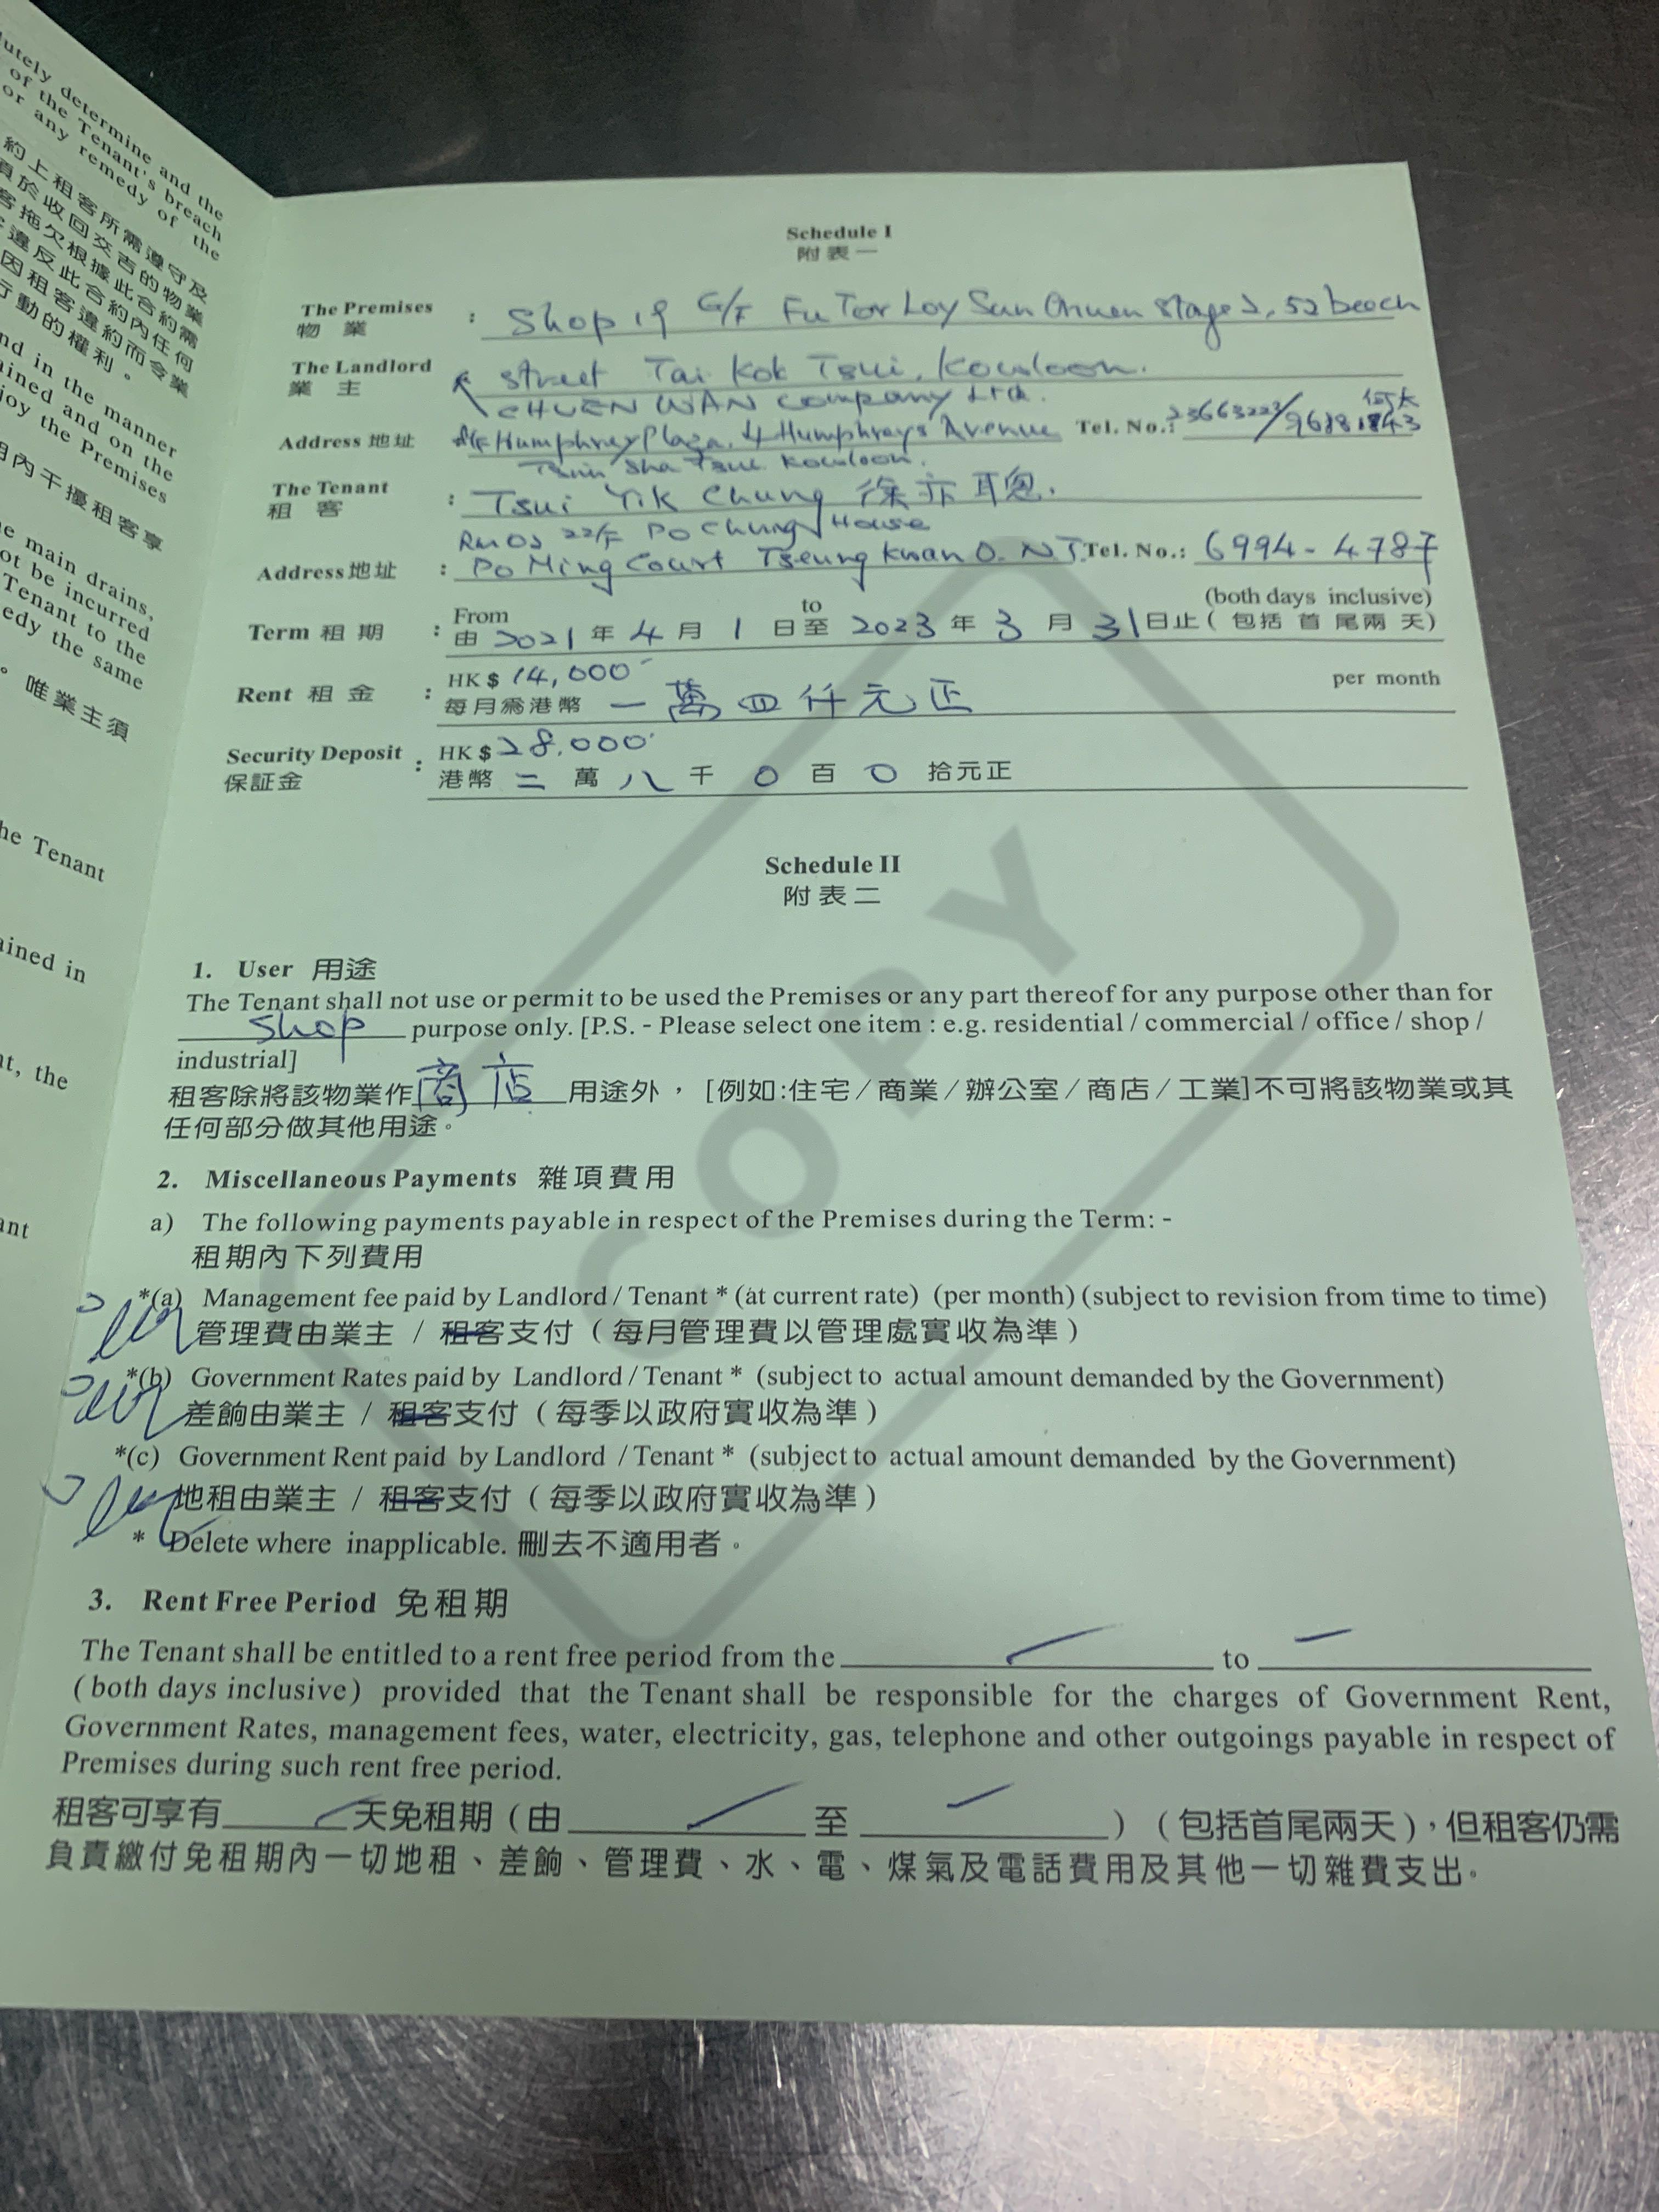 lutely determine and the
of the Tenant's breach
or any remedy of the
約上租客所需遵守及
須於收回交吉的物業
客拖欠根據此合約需
違反此合約內任何
因租客違約而令業
行動的權利。
nd in the manner
ained and on the
joy the Premises
內干擾租客享
e main drains,
ot be incurred
Tenant to the
edy the same
。唯業主須
he Tenant
ained in
nt, the
ant
Schedule I
附表一
The Premises : Shop 19 G/F Fu Tor Loy Sun Chuen Stage 2, 52 beech
物業
The Landlord street Tai Kok Tsui, Kowloon.
業主
CHUEN WAN Company Ltd.
Address 地址 Humphrey Plaza, 4 Humphreys Avenue Tel. No.: 23663223/96881843
Tsim Sha Tsui Kowloon.
The Tenant : Tsui Yik Chung 徐亦聰.
租客
22/F Po Chung House
Address 地址 : Po Ming Court Tseung Kwan O. N.T. Tel. No.: 6994-4787
From to (both days inclusive)
Term 租期 : 由 2021 年 4 月 1 日至 2023 年 3 月 31 日止(包括首尾兩天)
HK$ 14,000 per month
Rent 租金 : 每月為港幣 一萬四仟元正
Security Deposit : HK$ 28,000
保証金 港幣 二 萬 八 千 0 百 0 拾元正
Schedule II
附表二
1. User 用途
The Tenant shall not use or permit to be used the Premises or any part thereof for any purpose other than for
shop purpose only. [P.S. - Please select one item : e.g. residential / commercial / office / shop /
industrial]
租客除將該物業作 商店 用途外,[例如:住宅/商業/辦公室/商店/工業]不可將該物業或其
任何部分做其他用途。
2. Miscellaneous Payments 雜項費用
a) The following payments payable in respect of the Premises during the Term: -
租期內下列費用
*(a) Management fee paid by Landlord / Tenant * (at current rate) (per month) (subject to revision from time to time)
管理費由業主 / 租客支付(每月管理費以管理處實收為準)
*(b) Government Rates paid by Landlord / Tenant * (subject to actual amount demanded by the Government)
差餉由業主 / 租客支付(每季以政府實收為準)
*(c) Government Rent paid by Landlord / Tenant * (subject to actual amount demanded by the Government)
地租由業主 / 租客支付(每季以政府實收為準)
* Delete where inapplicable. 刪去不適用者。
3. Rent Free Period 免租期
The Tenant shall be entitled to a rent free period from the to
(both days inclusive) provided that the Tenant shall be responsible for the charges of Government Rent,
Government Rates, management fees, water, electricity, gas, telephone and other outgoings payable in respect of
Premises during such rent free period.
租客可享有 天免租期(由 至 )(包括首尾兩天),但租客仍需
負責繳付免租期內一切地租、差餉、管理費、水、電、煤氣及電話費用及其他一切雜費支出。
COPY